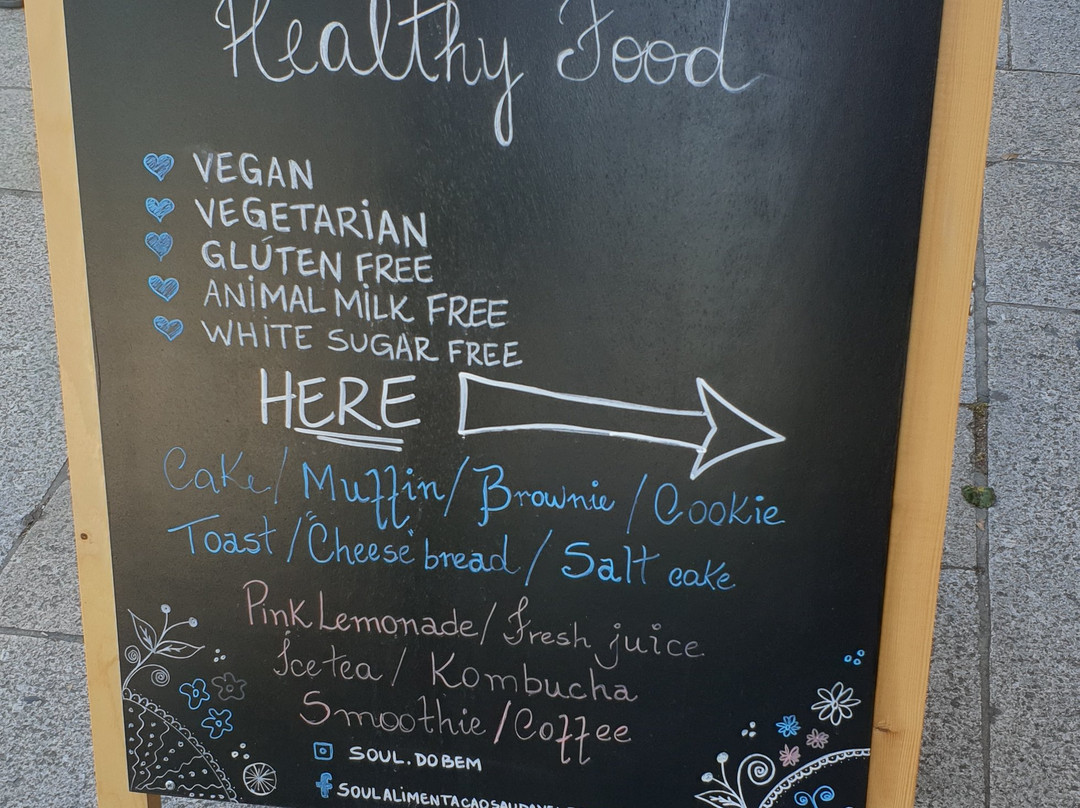 Healthy Food
VEGAN
VEGETARIAN
GLÚTEN FREE
ANIMAL MILK FREE
WHITE SUGAR FREE
HERE
Cake/Muffin/Brownie/Cookie
Toast/"Cheese" bread/Salt cake
Pink Lemonade/Fresh juice
Ice tea/Kombucha
Smoothie/Coffee
SOUL.DOBEM
SOULALIMENTACAOSAUDAVEL